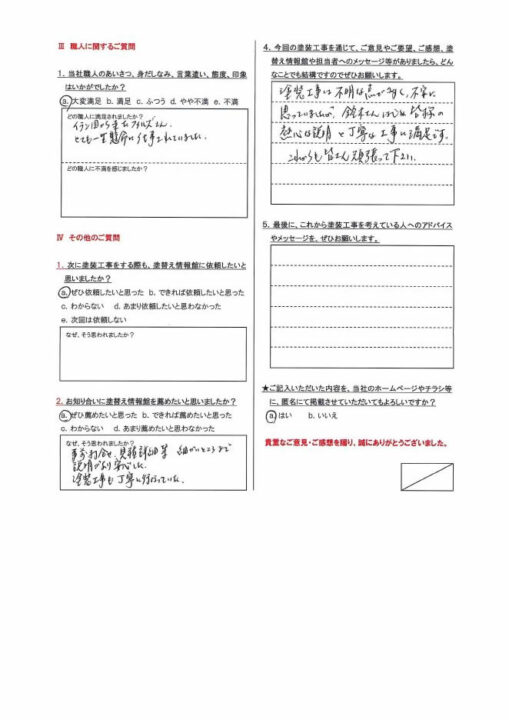 Ⅲ 職人に関するご質問
1. 当社職人のあいさつ、身だしなみ、言葉遣い、態度、印象
はいかがでしたか?
a. 大変満足 b. 満足 c. ふつう d. やや不満 e. 不満
どの職人に満足されましたか?
イラン国から来た さん
とても一生懸命に仕事されていました
どの職人に不満を感じましたか?
Ⅳ その他のご質問
1. 次に塗装工事をする際も、塗替え情報館に依頼したいと
思いましたか?
a. ぜひ依頼したいと思った b. できれば依頼したいと思った
c. わからない d. あまり依頼したいと思わなかった
e. 次回は依頼しない
なぜ、そう思われましたか?
2. お知り合いに塗替え情報館を薦めたいと思いましたか?
a. ぜひ薦めたいと思った b. できれば薦めたいと思った
c. わからない d. あまり薦めたいと思わなかった
なぜ、そう思われましたか?
事前打合せ、見積詳細等 細かいところまで
説明があり安心した
塗装工事も丁寧に行っていた。
4. 今回の塗装工事を通じて、ご意見やご要望、ご感想、塗
替え情報館や担当者へのメッセージ等がありましたら、どん
なことでも結構ですのでぜひお願いします。
塗装工事は不明な点が多く、不安に
思っていましたが、鈴木さんはじめ皆様の
熱心な説明と丁寧な工事に満足です。
これからも皆さん頑張って下さい。
5. 最後に、これから塗装工事を考えている人へのアドバイス
やメッセージを、ぜひお願いします。
★ご記入いただいた内容を、当社のホームページやチラシ等
に、匿名にて掲載させていただいてもよろしいですか?
a. はい b. いいえ
貴重なご意見・ご感想を賜り、誠にありがとうございました。